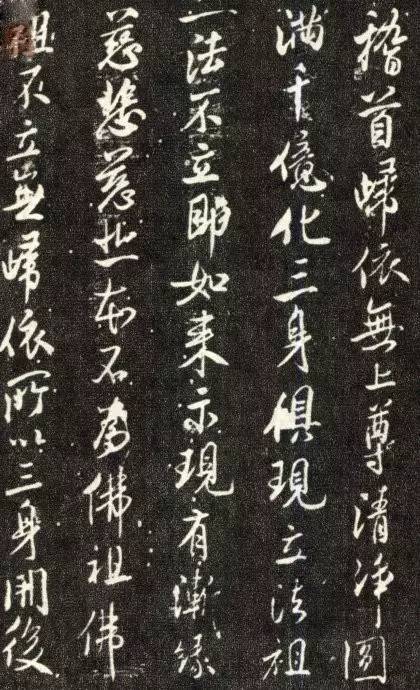 稽首歸依無上尊清净圓
滿千億化三身俱現立法祖
一法不立即如來示現有漸緣
慈愍慈悲本不為佛祖佛
祖不立無歸依所以三身開後